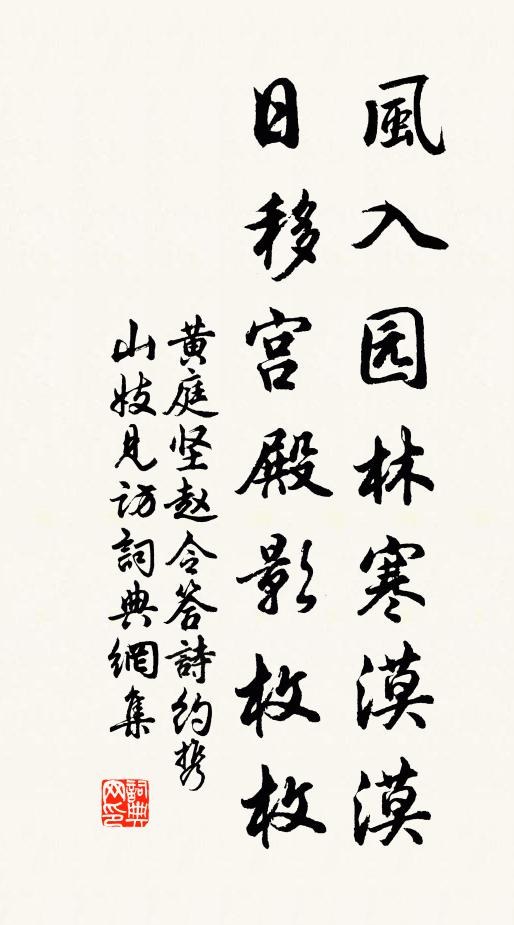 風入园林寒漠漠
日移宫殿影枚枚
黄庭坚赵令答詩约携
山妓見访詞典網集
詞典网印